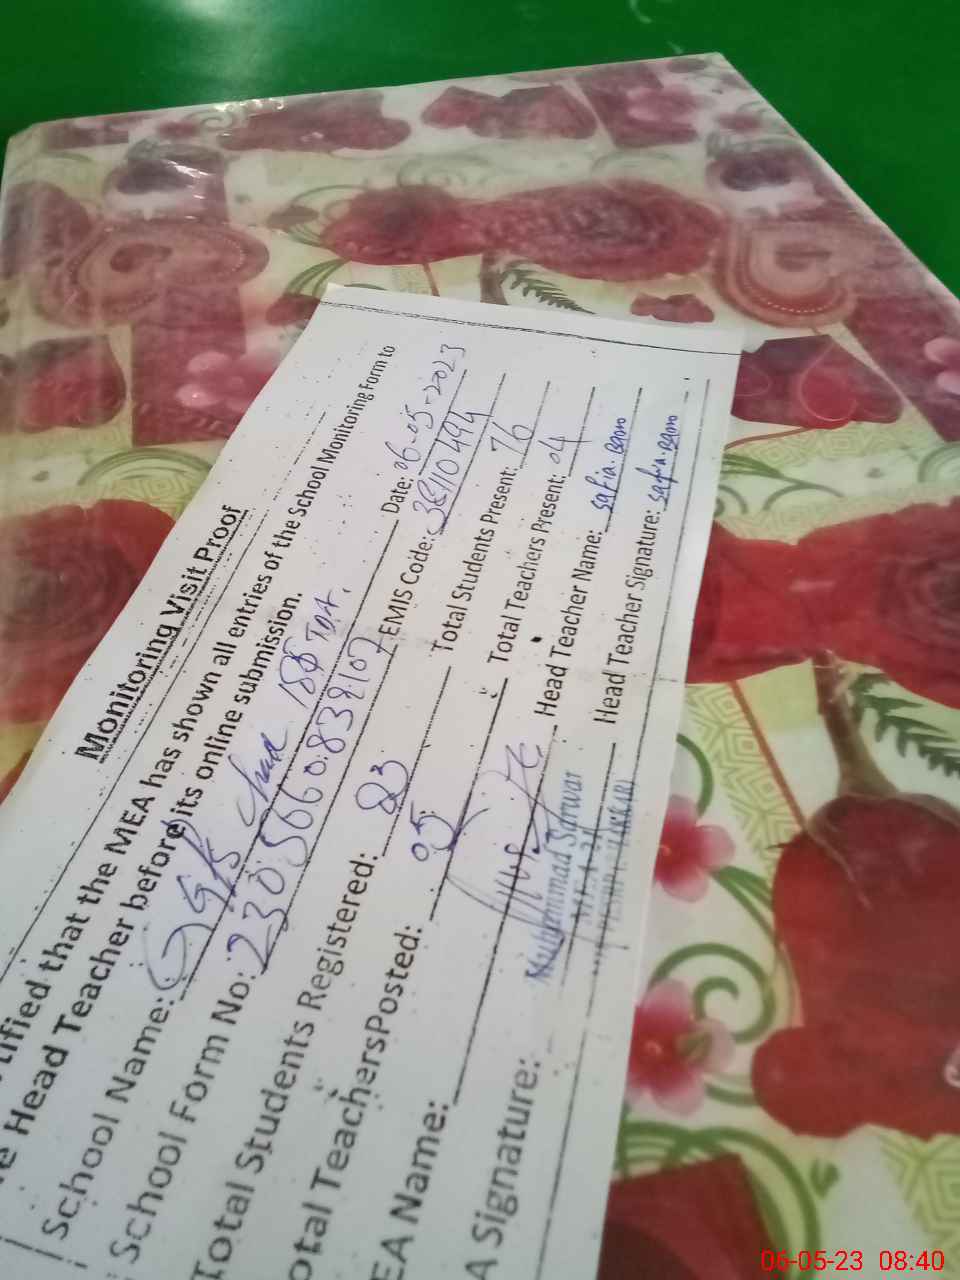 Monitoring Visit Proof
tified that the MEA has shown all entries of the School Monitoring Form to
e Head Teacher before its online submission.
School Name: Chak TDA. Date: 06-05-2023
School Form No: EMIS Code:
Total Students Registered: 83 Total Students Present: 76
otal TeachersPosted: 05 Total Teachers Present: 04
EA Name: Head Teacher Name: Safia.Bano
A Signature: Head Teacher Signature: Safia.Bano
Muhammad Sarwar
06-05-23 08:40